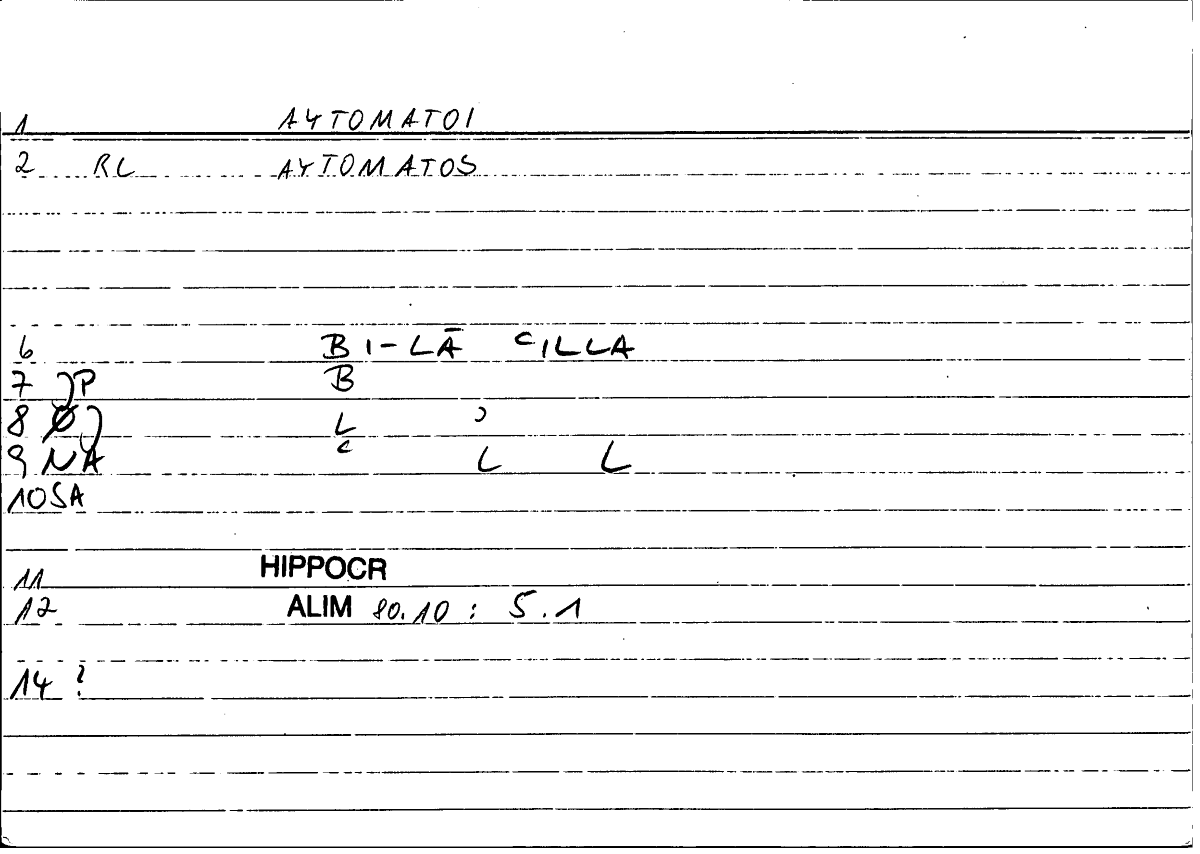 1 AYTOMATOI
2 RL AYTOMATOS
6 BI-LĀ ᶜILLA
7 P B
8 Ø L ᵓ
9 NA ᶜ L L
10 SA
11 HIPPOCR
12 ALIM 80.10 : 5.1
14 ?